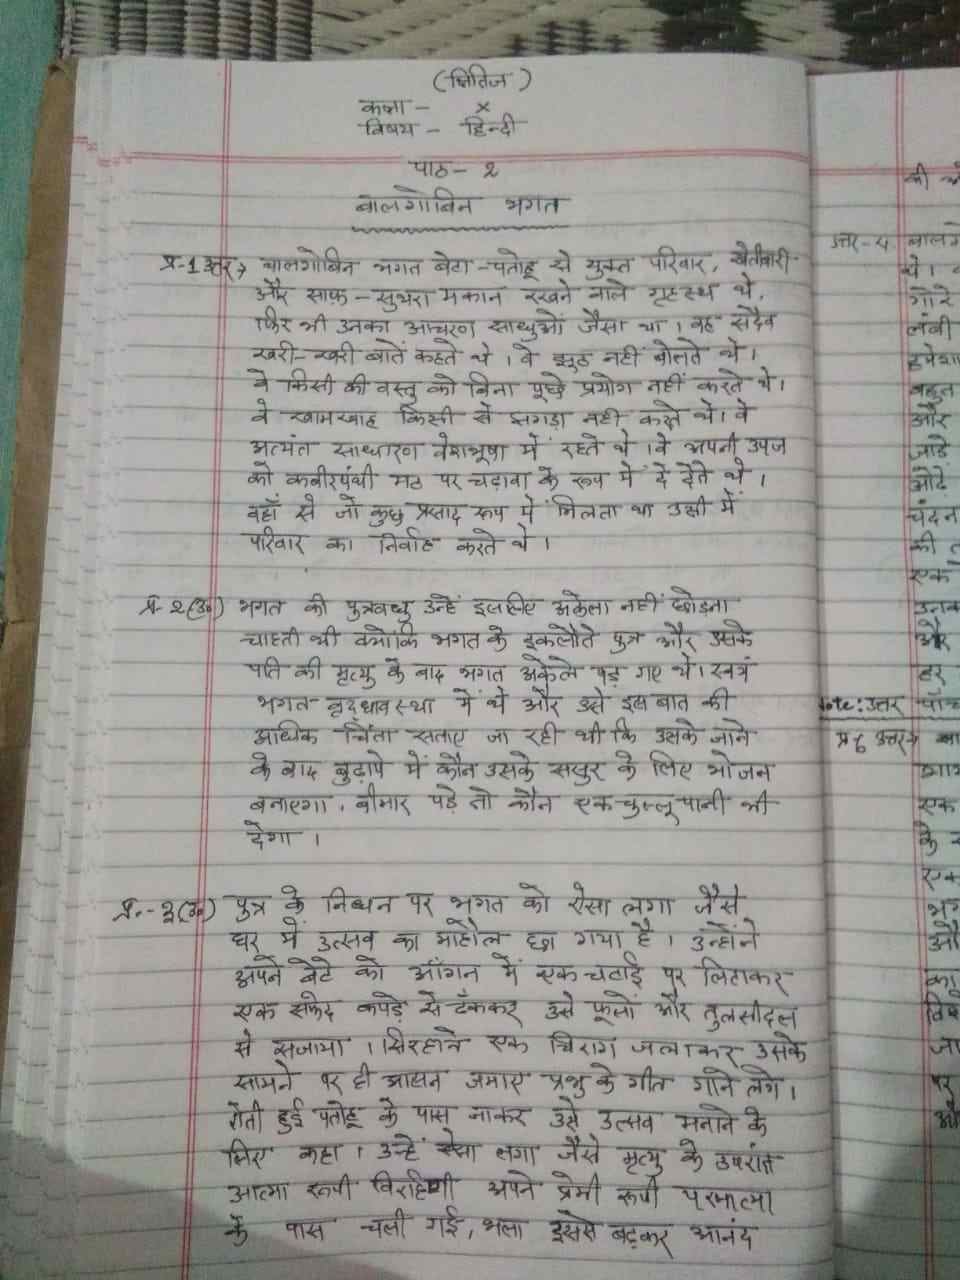 (क्षितिज)
कक्षा - X
विषय - हिन्दी
पाठ - 2
बालगोबिन भगत
प्र-1 उत्तर→ बालगोबिन भगत बेटा-पतोहू से युक्त परिवार, खेतीबारी
और साफ़-सुथरा मकान रखने वाले गृहस्थ थे,
फिर भी उनका आचरण साधुओं जैसा था। वह सदैव
खरी-खरी बातें कहते थे। वे झूठ नहीं बोलते थे।
वे किसी की वस्तु को बिना पूछे प्रयोग नहीं करते थे।
वे खामखाह किसी से झगड़ा नहीं करते थे। वे
अत्यंत साधारण वेशभूषा में रहते थे। वे अपनी उपज
को कबीरपंथी मठ पर चढ़ावा के रूप में दे देते थे।
वहाँ से जो कुछ प्रसाद रूप में मिलता था उसी में
परिवार का निर्वाह करते थे।
प्र-2 (उ०) भगत की पुत्रवधु उन्हें इसलिए अकेला नहीं छोड़ना
चाहती थी क्योंकि भगत के इकलौते पुत्र और उसके
पति की मृत्यु के बाद भगत अकेले पड़ गए थे। स्वयं
भगत वृद्धावस्था में थे और उसे इस बात की
अधिक चिंता सताए जा रही थी कि उसके जाने
के बाद बुढ़ापे में कौन उसके ससुर के लिए भोजन
बनाएगा, बीमार पड़े तो कौन एक चुल्लू पानी भी
देगा।
प्र.-3 (उ०) पुत्र के निधन पर भगत को ऐसा लगा जैसे
घर में उत्सव का माहौल छा गया है। उन्होंने
अपने बेटे को आँगन में एक चटाई पर लिटाकर
एक सफेद कपड़े से ढँककर उसे फूलों और तुलसीदल
से सजाया। सिरहाने एक चिराग जलाकर उसके
सामने पर ही आसन जमाए प्रभु के गीत गाने लगे।
रोती हुई पतोहू के पास जाकर उसे उत्सव मनाने के
लिए कहा। उन्हें ऐसा लगा जैसे मृत्यु के उपरांत
आत्मा रूपी विरहिणी अपने प्रेमी रूपी परमात्मा
के पास चली गई, भला इससे बढ़कर आनंद
की
उत्तर-4. बालगो
थे।
गोरे
लंबी
हमेशा
बहुत
और
जाड़े
ओढ़े
चंदन
की
एक
उनक
और
हर
Note: उत्तर पाँच
प्र 6 उत्तर→
एक
के
एक
भग
औ
का
जा
पर